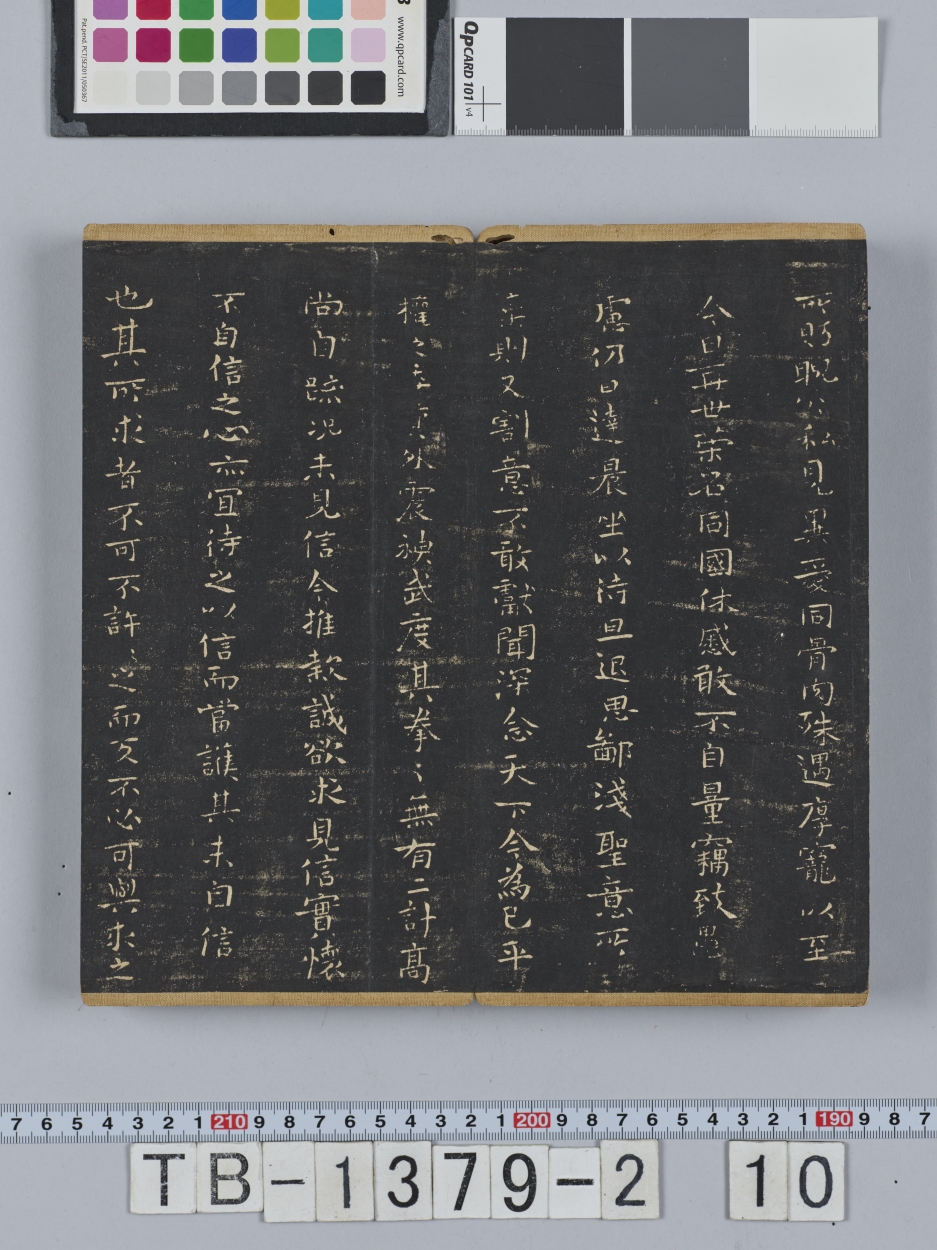 所盻睨公私見異愛同骨肉殊遇厚寵以至
今日再世榮名同國休慼敢不自量竊致愚
慮仍日達晨坐以待旦退思鄙淺聖意所
棄則又割意不敢獻聞深念天下今為已平
權之委質外震神武度其拳〻無有二計高
尚自疏況未見信今推款誠欲求見信實懷
不自信之心亦宜待之以信而當護其未自信
也其所求者不可不許〻之而反不必可與求之
www.qpcard.com
Pat.pend. PCT/SE2011/050367
QPCARD 101 v4
7 6 5 4 3 2 1 210 9 8 7 6 5 4 3 2 1 200 9 8 7 6 5 4 3 2 1 190 9 8 7
TB-1379-2 10